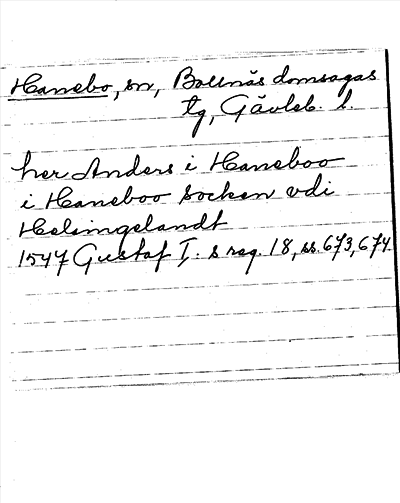 Hanebo, sn, Bollnäs domsagas
tg, Gävleb. l.
her Anders i Haneboo
i Haneboo socken vdi
Helsingelandt
1547 Gustaf I:s reg. 18, ss. 673, 674.